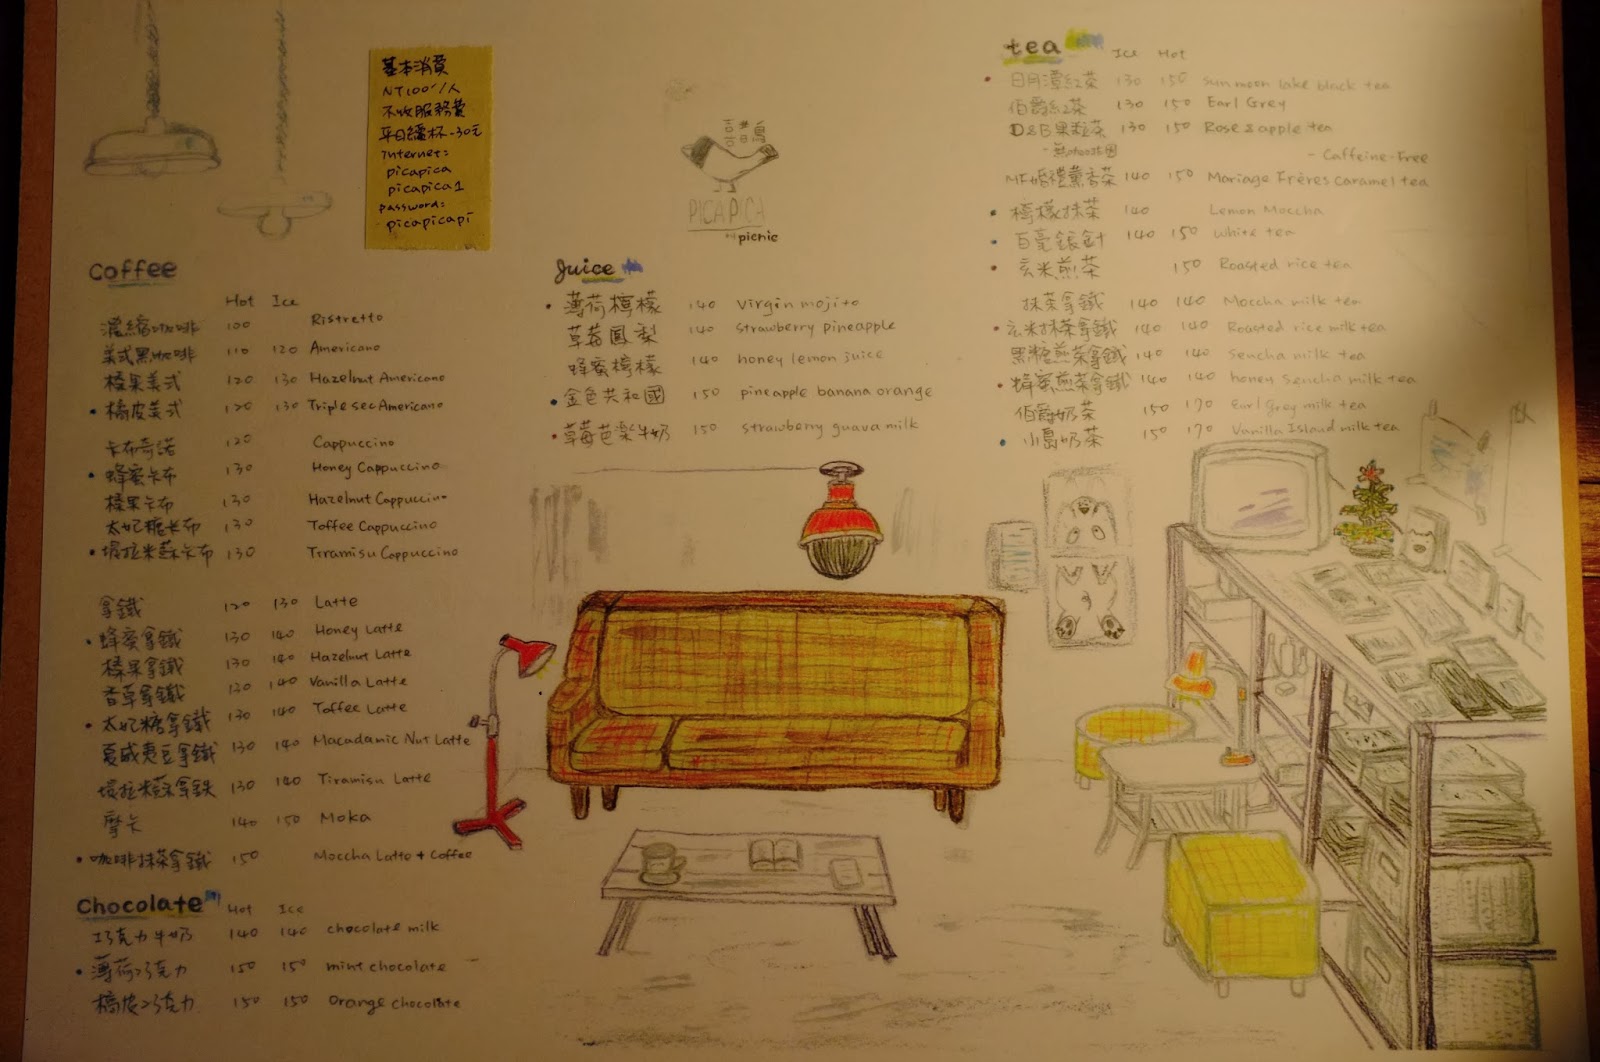 基本消費
NT100/人
不收服務費
平日續杯-30元
internet:
picapica
picapica1
password:
picapicapi
喜鵲
PICAPICA
picnic
Coffee
Hot Ice
濃縮咖啡 100 Ristretto
美式黑咖啡 110 120 Americano
榛果美式 120 130 Hazelnut Americano
• 橘皮美式 120 130 Triple sec Americano
卡布奇諾 120 Cappuccino
• 蜂蜜卡布 130 Honey Cappuccino
榛果卡布 130 Hazelnut Cappuccino
太妃糖卡布 130 Toffee Cappuccino
• 提拉米蘇卡布 130 Tiramisu Cappuccino
拿鐵 120 130 Latte
• 蜂蜜拿鐵 130 140 Honey Latte
榛果拿鐵 130 140 Hazelnut Latte
香草拿鐵 130 140 Vanilla Latte
• 太妃糖拿鐵 130 140 Toffee Latte
夏威夷豆拿鐵 130 140 Macadamic Nut Latte
提拉米蘇拿鉄 130 140 Tiramisu Latte
摩卡 140 150 Moka
• 咖啡抹茶拿鐵 150 Moccha Latte + Coffee
Chocolate Hot Ice
巧克力牛奶 140 140 chocolate milk
• 薄荷巧克力 150 150 mint chocolate
橘皮巧克力 150 150 Orange chocolate
Juice
• 薄荷檸檬 140 Virgin mojito
草莓鳳梨 140 strawberry pineapple
蜂蜜檸檬 140 honey lemon juice
• 金色共和國 150 pineapple banana orange
• 草莓芭樂牛奶 150 strawberry guava milk
tea Ice Hot
• 日月潭紅茶 130 150 sun moon lake black tea
伯爵紅茶 130 150 Earl Grey
D&B果粒茶 130 150 Rose & apple tea
- Caffeine-Free
MF婚禮薰香茶 140 150 Mariage Frères Caramel tea
• 檸檬抹茶 140 Lemon Moccha
• 白毫銀針 140 150 White tea
• 玄米煎茶 150 Roasted rice tea
抹茶拿鐵 140 140 Moccha milk tea
• 玄米抹茶拿鐵 140 140 Roasted rice milk tea
黑糖煎茶拿鐵 140 140 Sencha milk tea
• 蜂蜜煎茶拿鐵 140 140 honey Sencha milk tea
伯爵奶茶 150 170 Earl Grey milk tea
• 小島奶茶 150 170 Vanilla Island milk tea